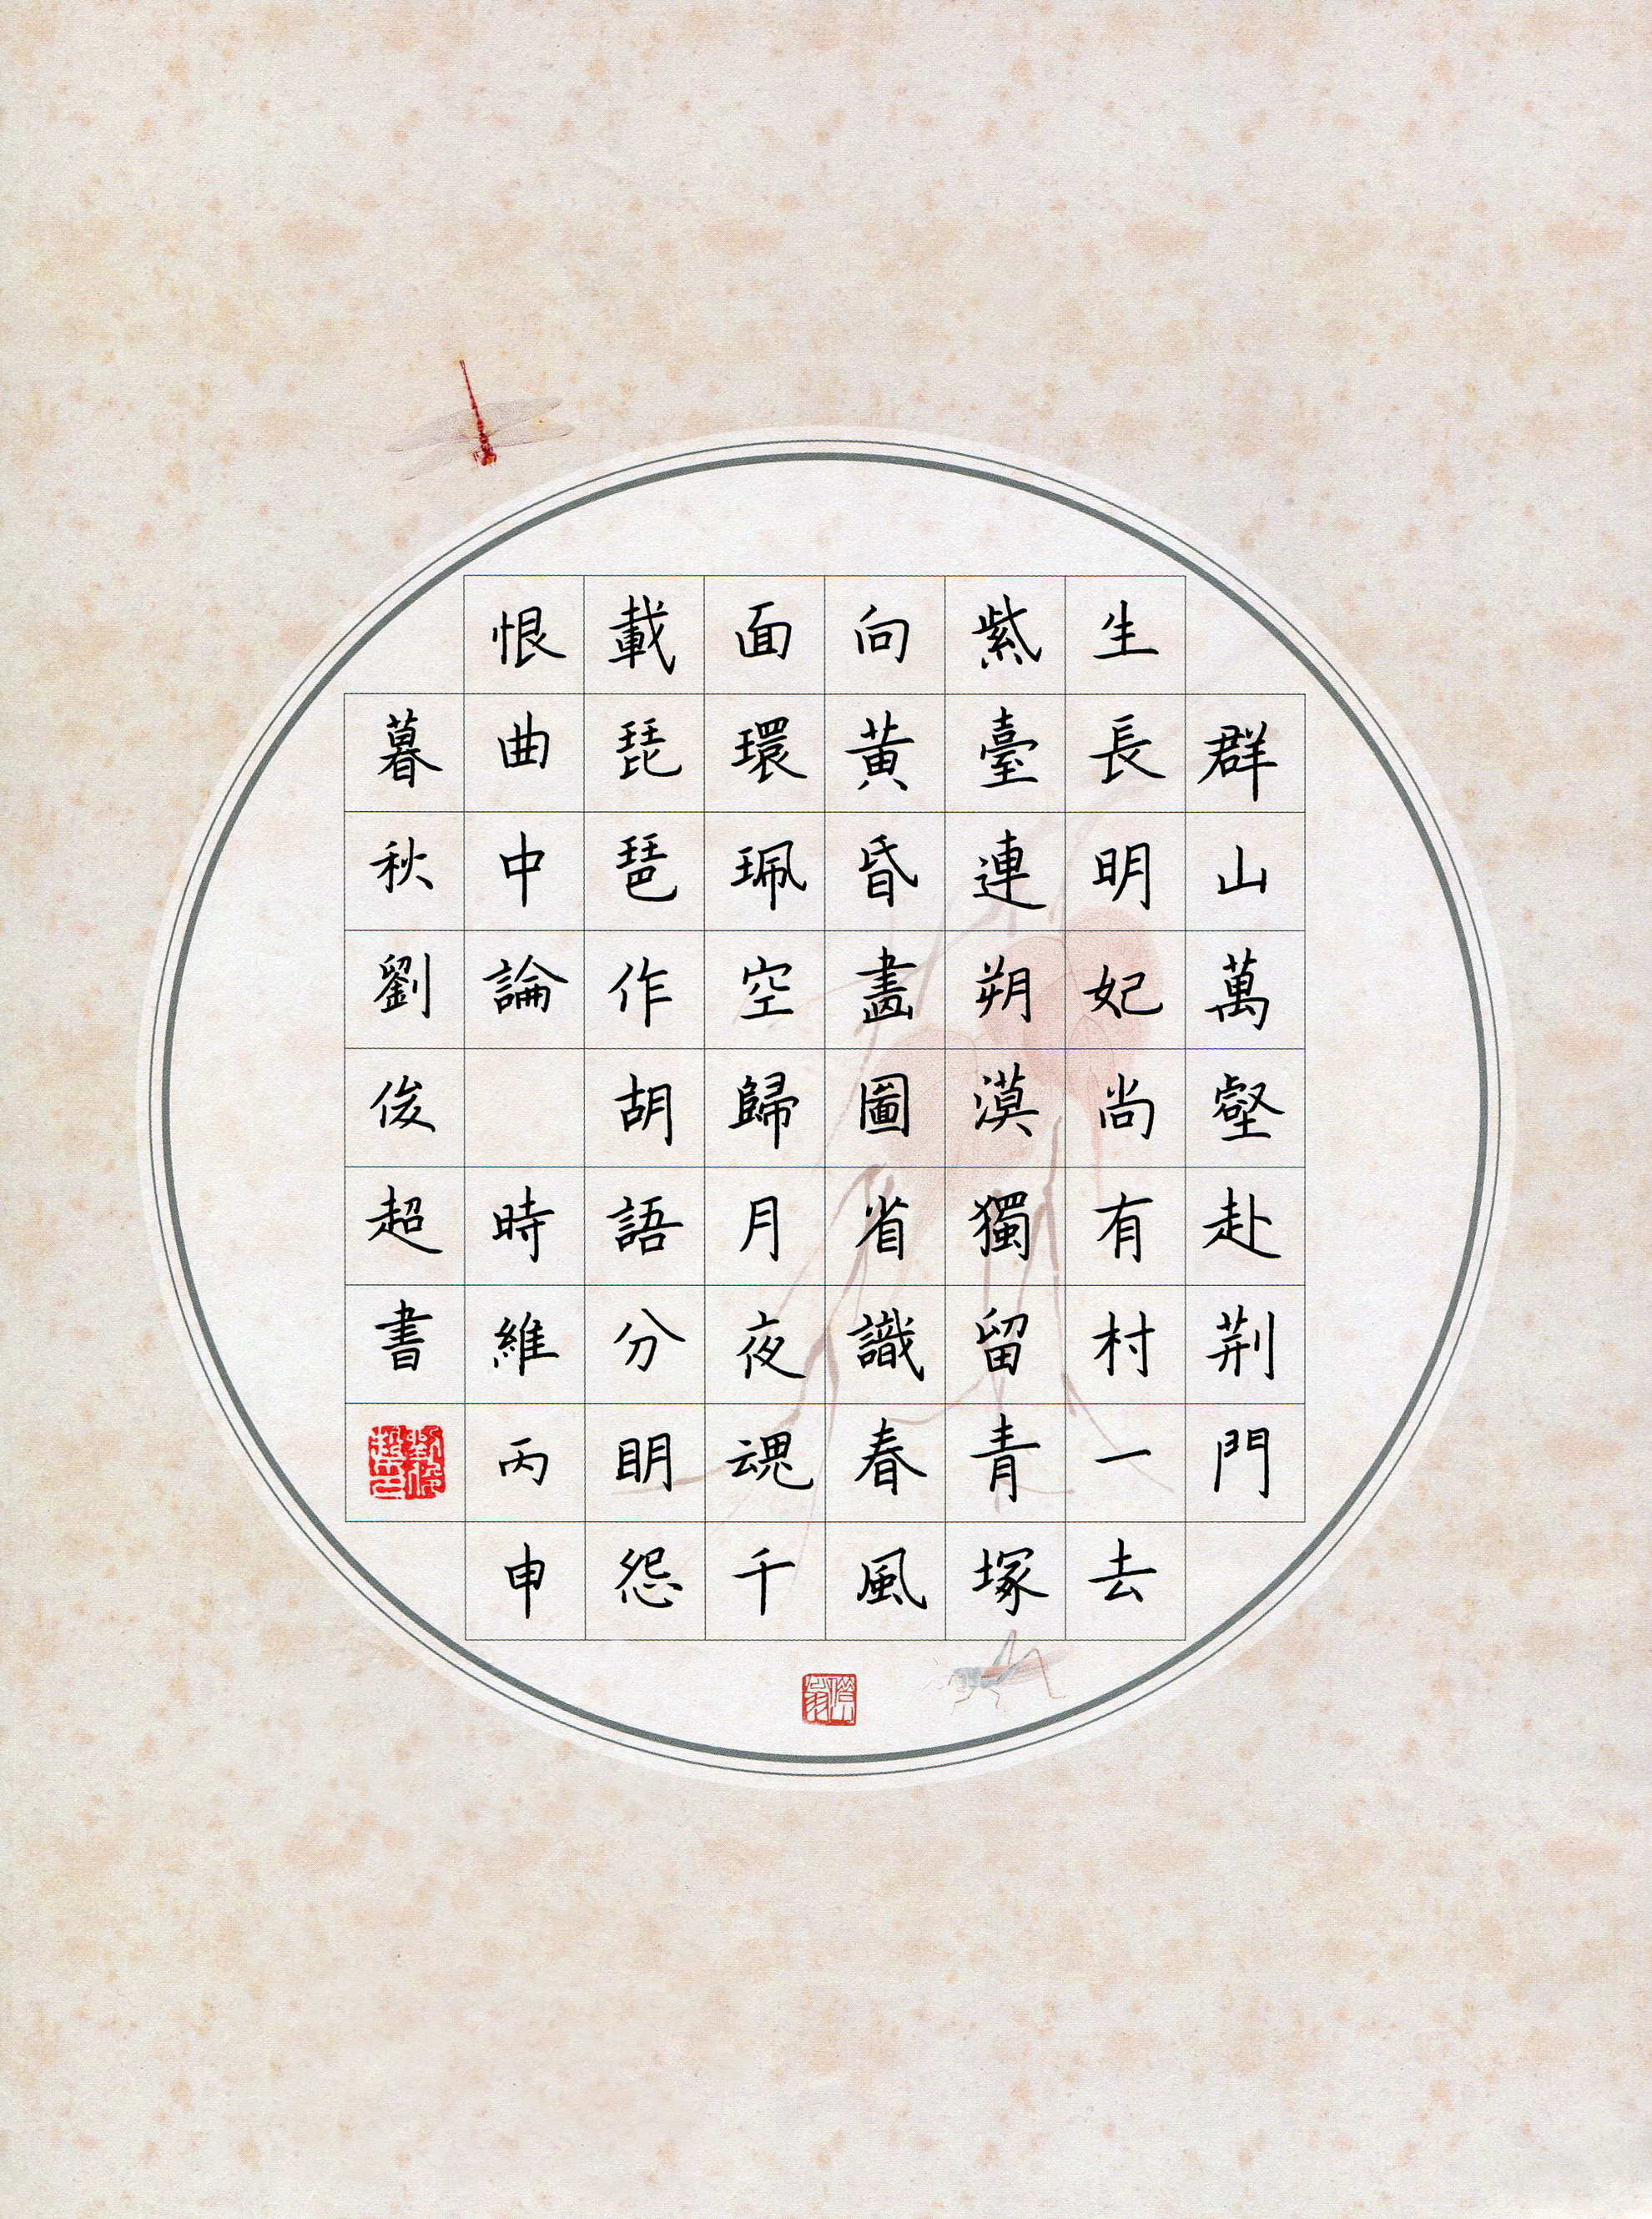 群山萬壑赴荆門
生長明妃尚有村一去
紫臺連朔漠獨留青塚
向黃昏畫圖省識春風
面環珮空歸月夜魂千
載琵琶作胡語分明怨
恨曲中論 時維丙申
暮秋劉俊超書